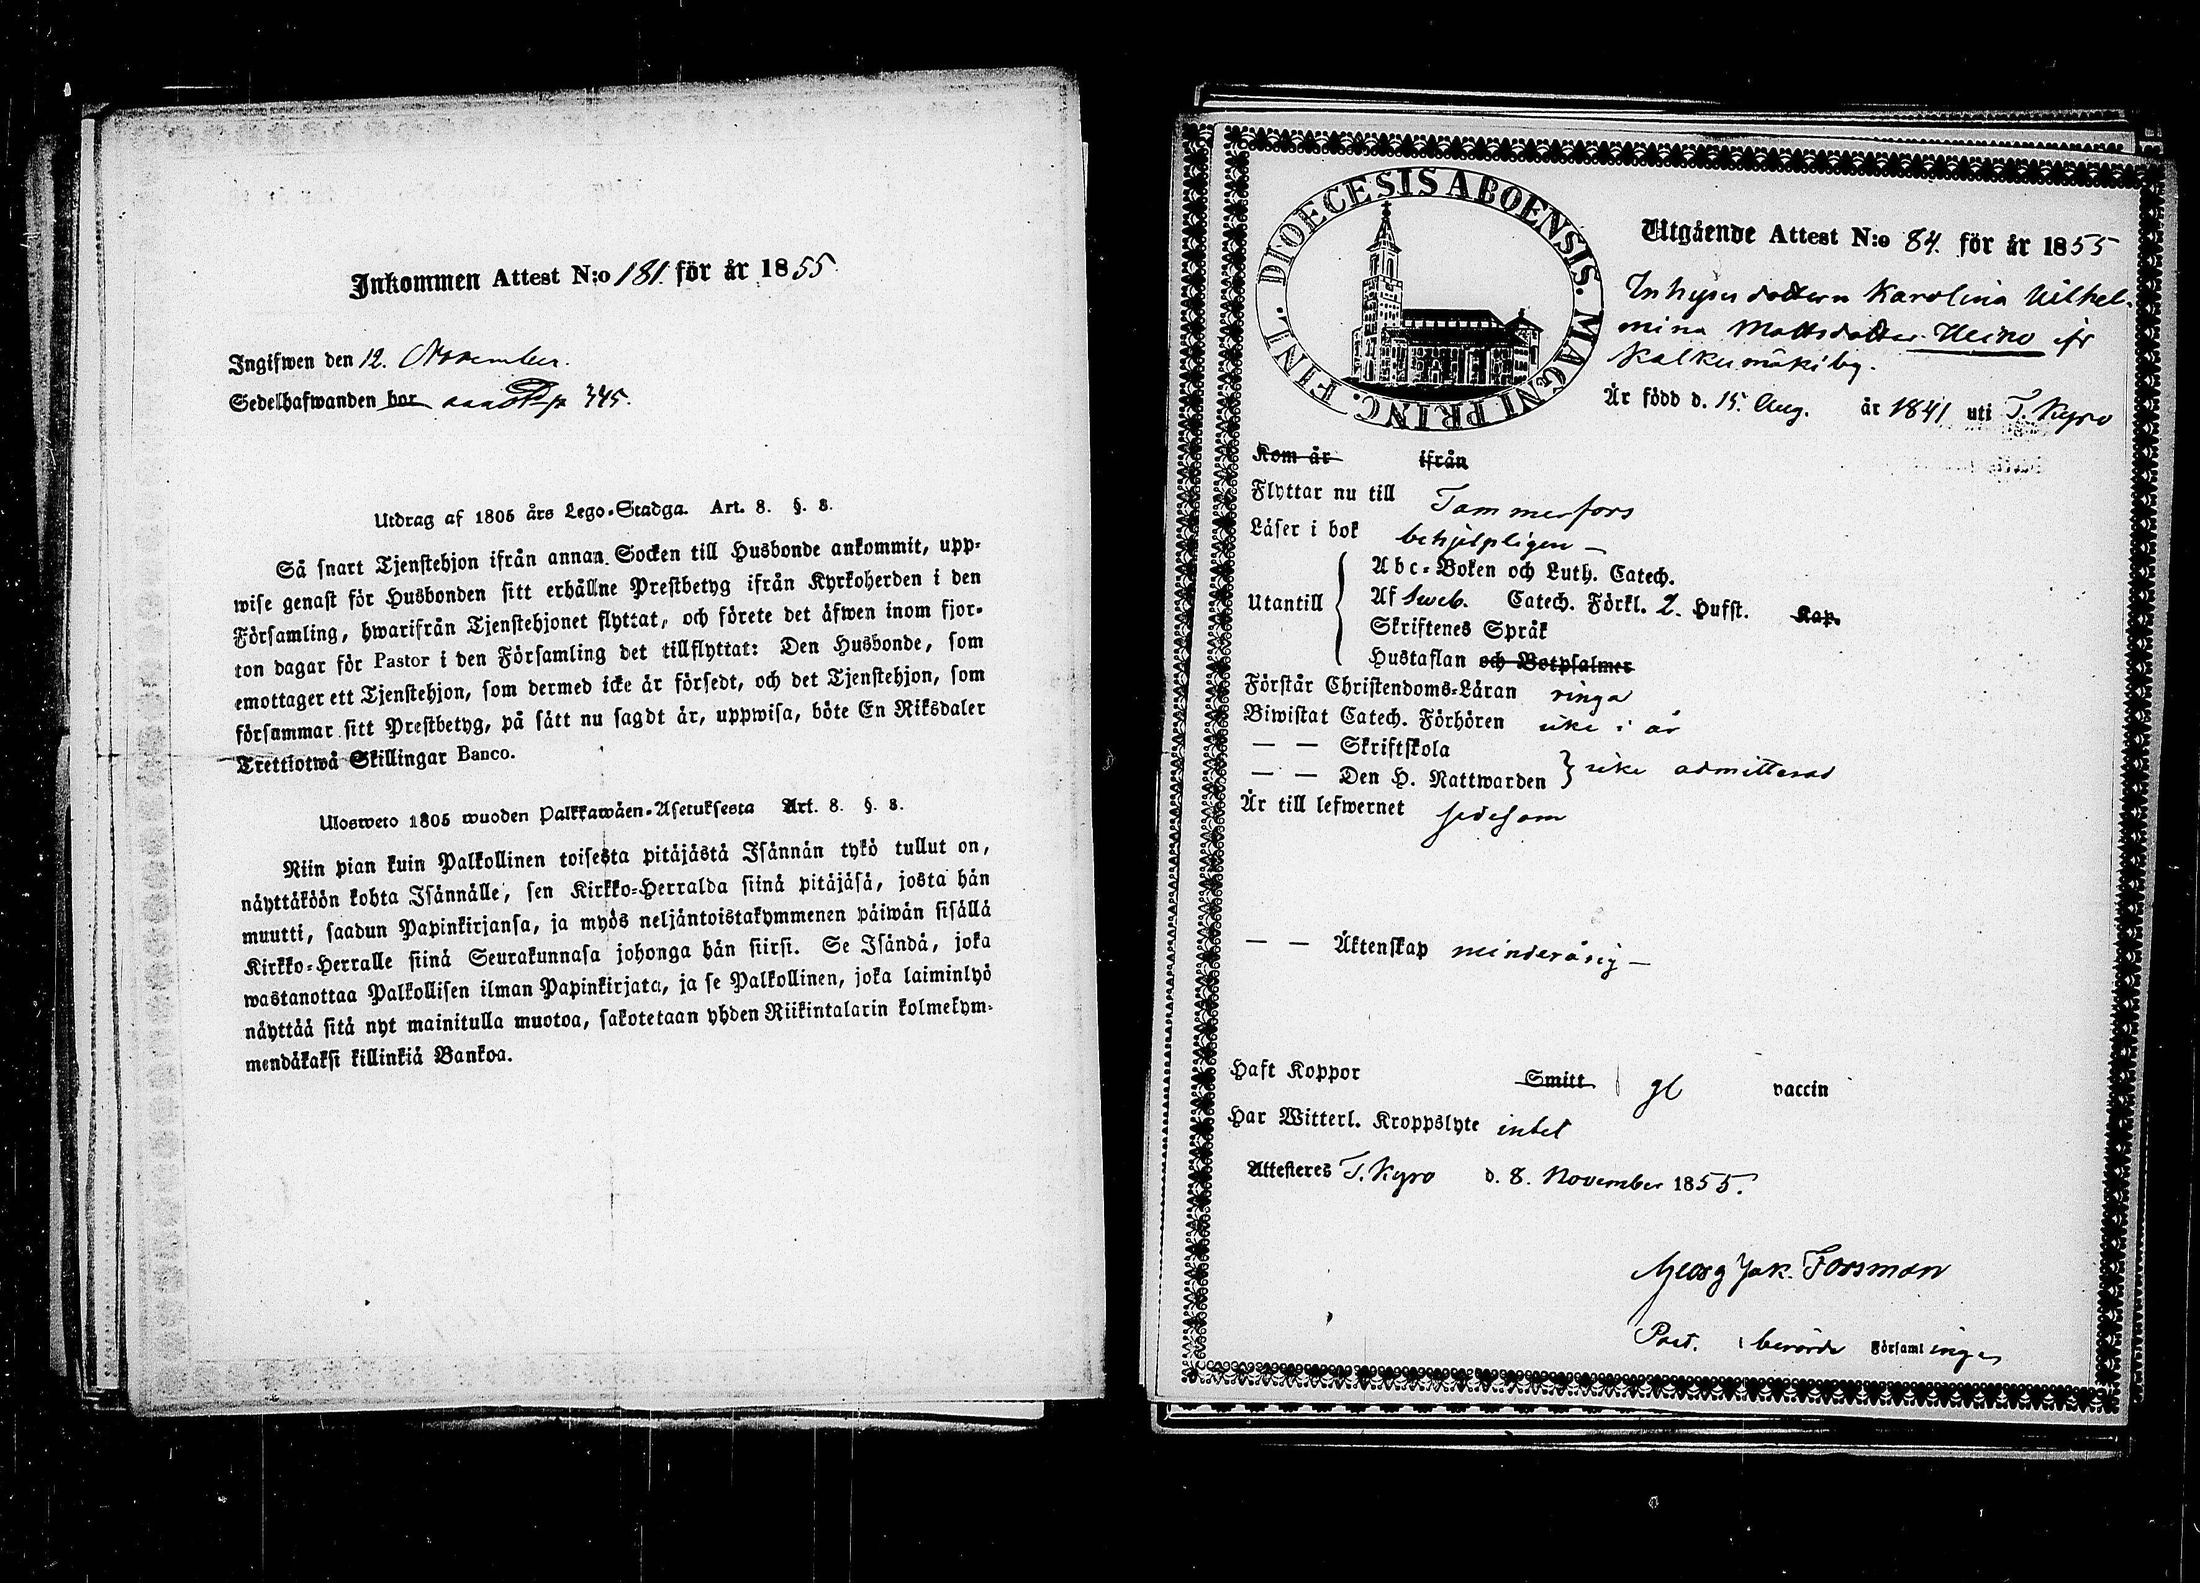 Inkommen Attest N:o 181. för år 1855.
Ingifwen den 12. November.
Sedelhafwanden bor 345.
Utdrag af 1805 års Lego-Stadga. Art. 8. §. 8.
Så snart Tjenstehjon ifrån annan Socken till Husbonde ankommit, upp-
wise genast för Husbonden sitt erhållne Prestbetyg ifrån Kyrkoherden i den
Församling, hwarifrån Tjenstehjonet flyttat, och förete det äfwen inom fjor-
ton dagar för Pastor i den Församling det tillflyttat: Den Husbonde, som
emottager ett Tjenstehjon, som dermed icke är försedt, och det Tjenstehjon, som
försummar sitt Prestbetyg, på sätt nu sagdt är, uppwisa, böte En Riksdaler
Trettiotwå Skillingar Banco.
Ulosweto 1805 wuoden Palkkawäen-Asetuksesta Art. 8. §. 8.
Niin pian kuin Palkollinen toisesta pitäjästä Isännän tykö tullut on,
näyttäköön kohta Isännälle, sen Kirkko-Herralda siinä pitäjäsä, josta hän
muutti, saadun Papinkirjansa, ja myös neljäntoistakymmenen päiwän sisällä
Kirkko-Herralle siinä Seurakunnasa johonga hän siirsi. Se Isändä, joka
wastanottaa Palkollisen ilman Papinkirjata, ja se Palkollinen, joka laiminlyö
näyttää sitä nyt mainitulla muotoa, sakotetaan yhden Riikintalarin kolmekym-
mendäkaksi killinkiä Bankoa.
DIOECESIS ABOENSIS. MAGNI PRINC. FINL.
Utgående Attest N:o 84. för år 1855
Inhyses dottern Karolina Wilhel-
mina Mattsdotter Heino ifr
Kalkunmäki by.
Är född d. 15. Aug. år 1841 uti T. Kyro
Kom år ifrån
Flyttar nu till Tammerfors
Läser i bok behjelpligen –
Utantill Abc-Boken och Luth. Catech.
Af Sveb. Catech. Förkl. 2. Hufst. Kap.
Skriftenes Språk
Hustaflan och Botpsalmer
Förstår Christendoms-Läran ringa
Biwistat Catech. Förhören icke i år
— — Skriftskola
— — Den H. Nattwarden } icke admitterad
Är till lefwernet sedesam
— — Äktenskap minderårig –
Haft Koppor Smitt gl vaccin
Har Witterl. Kroppslyte intet
Attesteres T. Kyro d. 8. November 1855.
Georg Jak. Forsman
Past. i berörde Församlingen